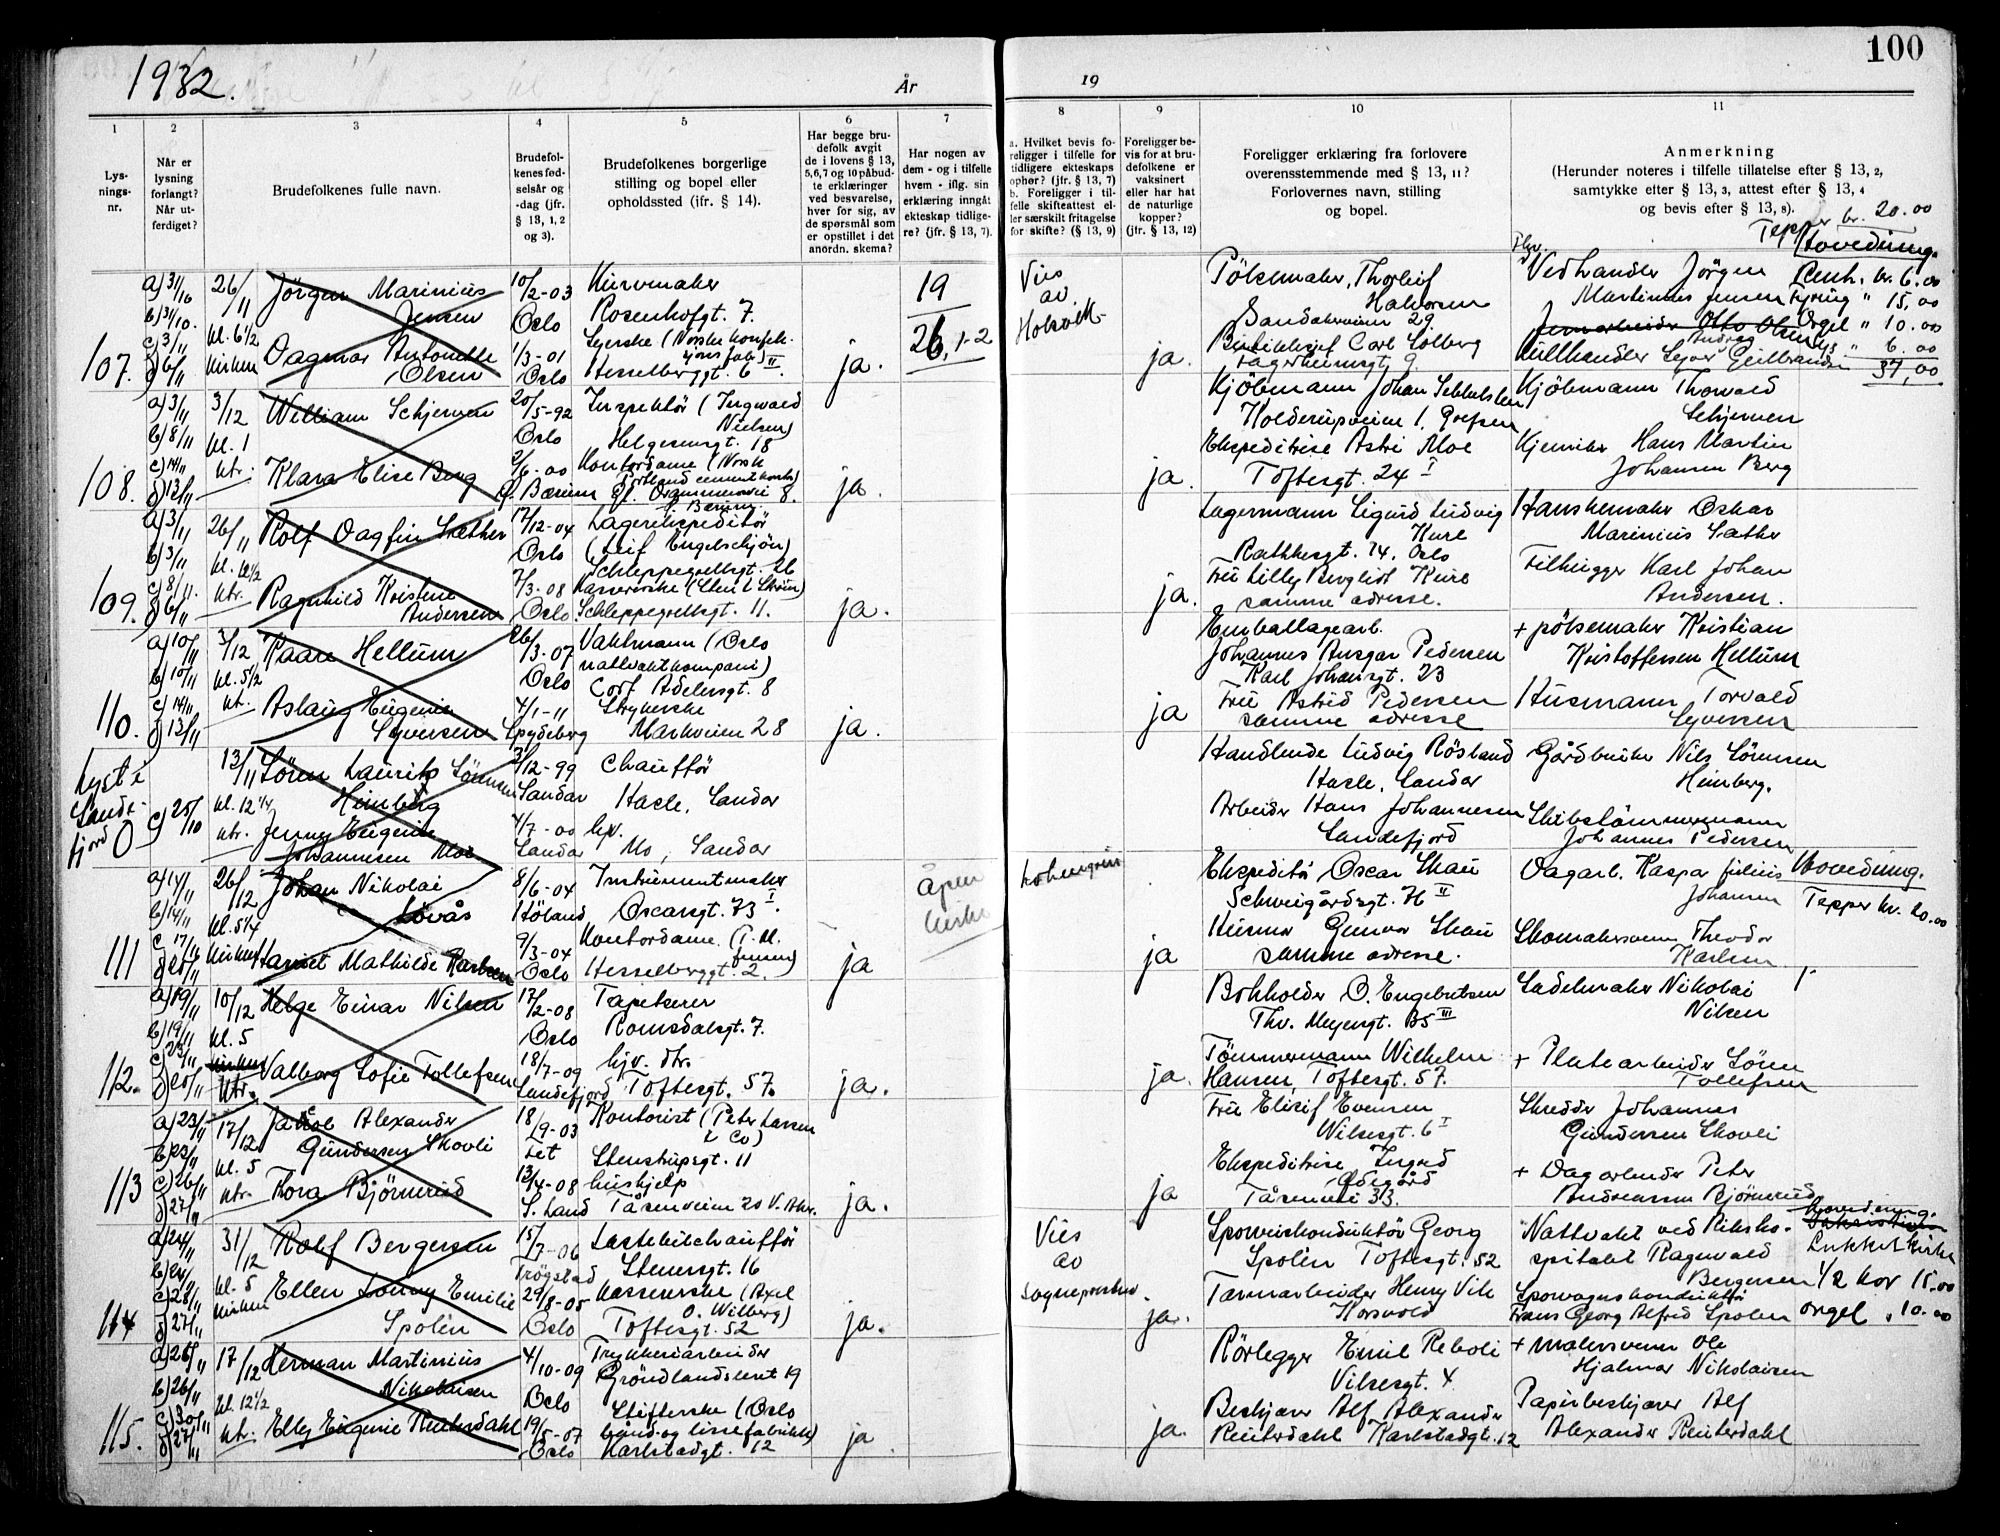 1932.
År
19
100
1
2
3
4
5
6
7
8
9
10
11
Lys-
nings-
nr.
Når er
lysning
forlangt?
Når ut-
ferdiget?
Brudefolkenes fulle navn.
Brudefol-
kenes fød-
selsår og
-dag (jfr.
§ 13, 1, 2
og 3).
Brudefolkenes borgerlige
stilling og bopel eller
opholdssted (ifr. § 14).
Har begge bru-
defolk avgit
de i lovens § 13,
5,6,7 og 10 påbud-
te erklæringer
ved besvarelse,
hver for sig, av
de spørsmål som
er opstillet i det
anordn. skema?
Har nogen av
dem - og i tilfelle
hvem - iflg. sin
erklæring inngått
ekteskap tidlige-
re? (jfr. § 13, 7).
a. Hvilket bevis fo-
religger i tilfelle for
tidligere ekteskaps
ophør? (jfr. § 13, 7)
b. Foreligger i til-
felle skifteattest el-
ler særskilt fritagelse
for skifte? (§ 13, 9)
Foreligger be-
vis for at bru-
defolkene er
vaksinert
eller har hat
de naturlige
kopper?
(jfr. § 13, 12)
Foreligger erklæring fra forlovere
overensstemmende med § 13, 11?
Forlovernes navn, stilling
og bopel.
Anmerkning
(Herunder noteres i tilfelle tillatelse efter § 13, 2,
samtykke etter § 13, 3, attest efter § 13, 4
og bevis efter § 13, 8).
Tepper kr. 20.00
Hovedinng.
107.
a) 31/10
b) 31/10.
c) 3/11
d) 6/11
26/11
kl. 6 1/2
kirken
Jörgen Marinius
Jensen
Dagmar Antonette
Olsen
10/12-03
Oslo
1/3-01
Oslo
Kurvmaker
Rosenhofgt. 7.
Syerske (Norske konfek-
sjonsfabr.)
Hesselbergsgt. 6 II.
ja.
19
26, 1-2
Vies
av
ja.
Pölsemaker, Thorleif
Halvorsen
Sandakerveien 29.
Butikksjef Carl Solberg
Fagerheimsgt. 9.
Vedhandler Jörgen
Martinus Jensen
Jernarbeider Otto Olsen
Kullhandler Syver Gulbrandsen
kr. 6.00
" 15,00
Orgel " 10.00
" 6.00
37,00
108.
a) 3/11
b) 8/11
c) 14/11
d) 13/11
3/12
kl. 1
ktr.
William Schjerven
Klara Elise Berg
20/5-92
Oslo
2/6-00
Ö. Bærum
Inspektör (Ingwald
Nielsen)
Helgesensgt. 18
Kontordame (Norsk
Portland cementkontor)
Gl. Drammensvei 8.
Ö. Bærum
ja.
ja.
Kjöbmann Johan Sebbelsten
Holderupveien 1, Grefsen
Ekspeditrise Astri Moe
Toftesgt. 24 I
Kjöbmann Thorvald
Schjerven
Kjemiker Hans Martin
Johannes Berg
109.
a) 3/11
b) 3/11
c) 8/11.
d) 6/11
26/11
kl. 6 1/2
ktr.
Rolf Dagfin Sæther
Ragnhild Kristine
Andersen
17/12-04
Oslo
7/3-08
Oslo
Lagerekspeditör
(Leif Engelschjön)
Schleppegrellsgt. 26
Kassererske (Sten & Ström)
Schleppegrellsgt. 11.
ja.
ja.
Lagermann Sigurd Ludvig
Kure
Rathkesgt. 14, Oslo
Fru Lilly Bergliot Kure
samme adresse.
Hanskemaker Oskar
Marinius Sæther
Filhugger Karl Johan
Andersen.
110.
a) 10/11
b) 10/11
c) 14/11
d) 13/11
3/12
kl. 5 1/2
ktr.
Kaare Hellum
Aslaug Eugenie
Syversen
26/3-07
Oslo
4/1-11
Spydeberg
Vaktmann (Oslo
nattvaktkompani)
Cort Adelersgt. 8
Strykerske
Markveien 28
ja.
ja
Emballagearb.
Johannes Ansgar Pedersen
Karl Johansgt. 23
Fru Astrid Pedersen
samme adresse
+ pölsemaker Kristian
Kristoffersen Hellum
Husmann Torvald
Syversen
Lyst i
Sande-
fjord
0
c) 25/10
13/11
kl. 12 1/4
ktr.
Sören Laurits Sörensen
Himberg
Jenny Eugenie
Johannesen Moe
3/12-99
Sandar
4/7-00
Sandar
Chafför
Hasle, Sandar
hjv.
Mo, Sandar
Handlende Ludvig Rösland
Hasle, Sandar
Arbeider Hans Johannesen
Sandefjord
Gårdbruker Nils Sörensen
Himberg.
Skibstömmermann
Johannes Pedersen
111
a) 14/11
b) 14/11
c) 17/11
d) 20/11
26/12
kl. 5 1/4
kirken
Johan Nikolai
Lövås
Harriet Mathilde Karlsen
8/6-04
Höland
9/3-04
Oslo
Instrumentmaker
Oscarsgt. 73 I.
Kontordame.
Hesselbergsgt. 2.
ja
åpen
kirke
Lohengrin
ja
Ekspeditör Oscar Skau
Schweigårdsgt. 76 II
Husmor Gunvor Skau
samme adresse.
Dagarb. Kaspar Julius
Johansen
Skomakersvenn Theodor
Karlsen
Hovedinng.
Tepper kr. 20.00
112.
a) 19/11
b) 19/11
c) 23/11
d) 20/11
10/12
kl. 5
kirken
ktr.
Helge Einar Nilsen
Valborg Sofie Tollefsen
17/2-08
Oslo
18/7-09
Sandefjord
Tapetserer
Romsdalsgt. 7.
hjv. dtr.
Toftesgt. 57.
ja.
ja.
Bokholder O. Engebretsen
Thv. Meyersgt. 35 III
Tömmermann Wilhelm
Hansen, Toftesgt. 57.
Sadelmaker Nikolai
Nilsen
+ Platearbeider Sören
Tollefsen
113
a) 23/11
b) 23/11
c) 26/11
d) 27/11
17/12
kl. 5
ktr.
Jakob Alexander
Gundersen Skovli
Kora Björnerud
18/9-03
Fet
13/4-08
S. Land
Kontorist (Peter Larsen
& Co)
Stenstrupsgt. 11
hushjelp
Tåsenveien 20 V. Aker.
ja.
ja
Fru Elisif Evensen
Wilsesgt. 6 I
Ekspeditrise Ingrid
Ödegård
Tåsenvei 33.
Skredder Johannes
Gundersen Skovli
+ Dagarbeider Peter
Andreassen Björnerud
114
a) 24/11
b) 24/11
c) 28/11
d) 27/11
31/12
kl. 5
kirken
Rolf Bergersen
Ellen Lonny Emilie
Spolén
15/7-06
Trögstad
29/8-05
Oslo
Lastebilchafför
Stenersgt. 16
Kassererske (Axel
O. Wilberg)
Toftesgt. 52
ja.
Vies
av
Sognepresten.
ja.
Sporveiskonduktör Georg
Spolén Toftesgt. 52
Tarmarbeider Henry Vik
Korsvold
Nattvakt ved Riksho-
spitalet Ragnvald
Bergersen
Sporvognskonduktör
Frans Georg Alfred Spolén
Hovedinng.
Lukket kirke
1/2 kor 15.00
orgel " 10.00
115.
a) 26/11
b) 26/11
c) 30/11
d) 27/11
17/12
kl. 12 1/2
ktr.
Herman Martinius
Nikolaisen
Elly Eugenie Reuterdahl
4/10-09
Oslo
19/5-07
Oslo
Trykkeriarbeider
Gröndlandsleret 19
Stifterske (Oslo
bånd- og lissefabrikk)
Karlstadgt. 12
ja
ja.
Rörlegger Emil Reboli
Vilsesgt. 4
Beskjærer Alf Alexander
Reuterdahl Karlstadgt. 12
+ malersvenn Ole
Hjalmar Nikolaisen
Papirbeskjærer Alf
Alexander Reuterdahl